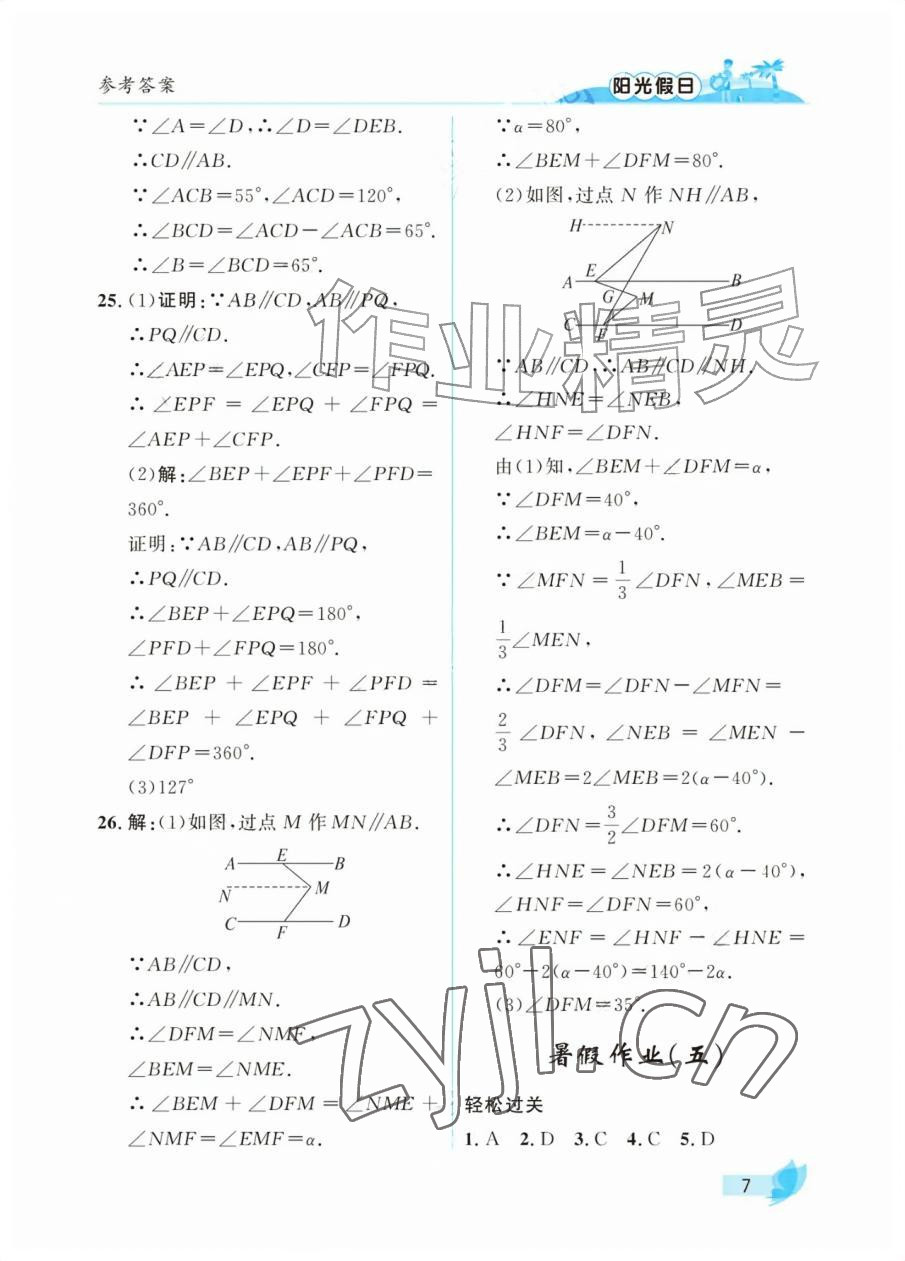 参考答案
阳光假日
∵∠A=∠D,∴∠D=∠DEB.
∴CD∥AB.
∵∠ACB=55°,∠ACD=120°,
∴∠BCD=∠ACD-∠ACB=65°.
∴∠B=∠BCD=65°.
25.(1)证明:∵AB∥CD,AB∥PQ,
∴PQ∥CD.
∴∠AEP=∠EPQ,∠CFP=∠FPQ.
∴∠EPF=∠EPQ+∠FPQ=
∠AEP+∠CFP.
(2)解:∠BEP+∠EPF+∠PFD=
360°.
证明:∵AB∥CD,AB∥PQ,
∴PQ∥CD.
∴∠BEP+∠EPQ=180°,
∠PFD+∠FPQ=180°.
∴∠BEP+∠EPF+∠PFD=
∠BEP+∠EPQ+∠FPQ+
∠DFP=360°.
(3)127°
26.解:(1)如图,过点M作MN∥AB.
A E B
N M
C F D
∵AB∥CD,
∴AB∥CD∥MN.
∴∠DFM=∠NMF,
∠BEM=∠NME.
∴∠BEM+∠DFM=∠NME+
∠NMF=∠EMF=α.
∵α=80°,
∴∠BEM+∠DFM=80°.
(2)如图,过点N作NH∥AB,
H N
A E B
G M
C F D
∵AB∥CD,∴AB∥CD∥NH.
∴∠HNE=∠NEB,
∠HNF=∠DFN.
由(1)知,∠BEM+∠DFM=α,
∵∠DFM=40°,
∴∠BEM=α-40°.
∵∠MFN=1/3∠DFN,∠MEB=
1/3∠MEN,
∴∠DFM=∠DFN-∠MFN=
2/3∠DFN,∠NEB=∠MEN-
∠MEB=2∠MEB=2(α-40°).
∴∠DFN=3/2∠DFM=60°.
∴∠HNE=∠NEB=2(α-40°),
∠HNF=∠DFN=60°,
∴∠ENF=∠HNF-∠HNE=
60°-2(α-40°)=140°-2α.
(3)∠DFM=35°.
暑假作业(五)
轻松过关
1.A 2.D 3.C 4.C 5.D
7
作业精灵
zyjl.cn